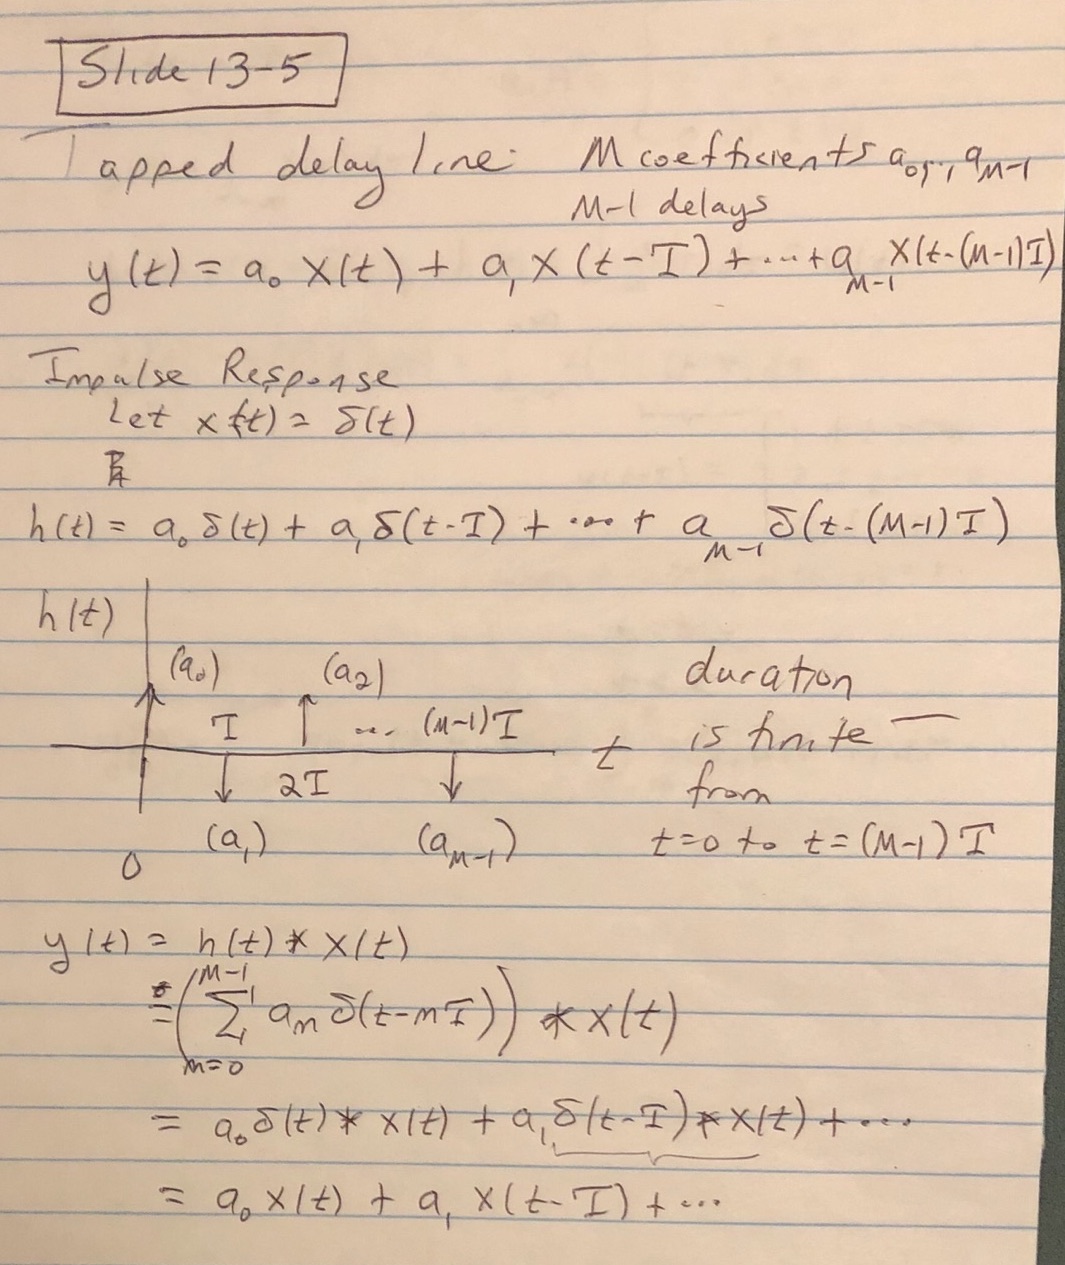 Slide 13-5
Tapped delay line: M coefficients a₀,..., a_{M-1}
M-1 delays
y(t) = a₀ x(t) + a₁ x(t-T) + ... + a_{M-1} x(t-(M-1)T)
Impulse Response
Let x(t) = δ(t)
h(t) = a₀ δ(t) + a₁ δ(t-T) + ... + a_{M-1} δ(t-(M-1)T)
h(t)
(a₀) (a₂)
T ... (M-1)T
t
2T
(a₁) (a_{M-1})
0
duration
is finite
from
t=0 to t=(M-1)T
y(t) = h(t) * x(t)
= (∑_{m=0}^{M-1} a_m δ(t-mT)) * x(t)
= a₀ δ(t) * x(t) + a₁ δ(t-T) * x(t) + ...
= a₀ x(t) + a₁ x(t-T) + ...